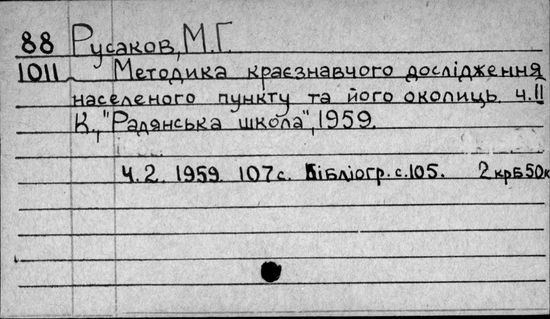 88 Русаков, М.Г.
1011 Методика краєзнавчого дослідження
населеного пункту та його околиць. ч.II
К., "Радянська школа", 1959.
Ч. 2. 1959. 107 с. Бібліогр. с.105. 2 крб 50к